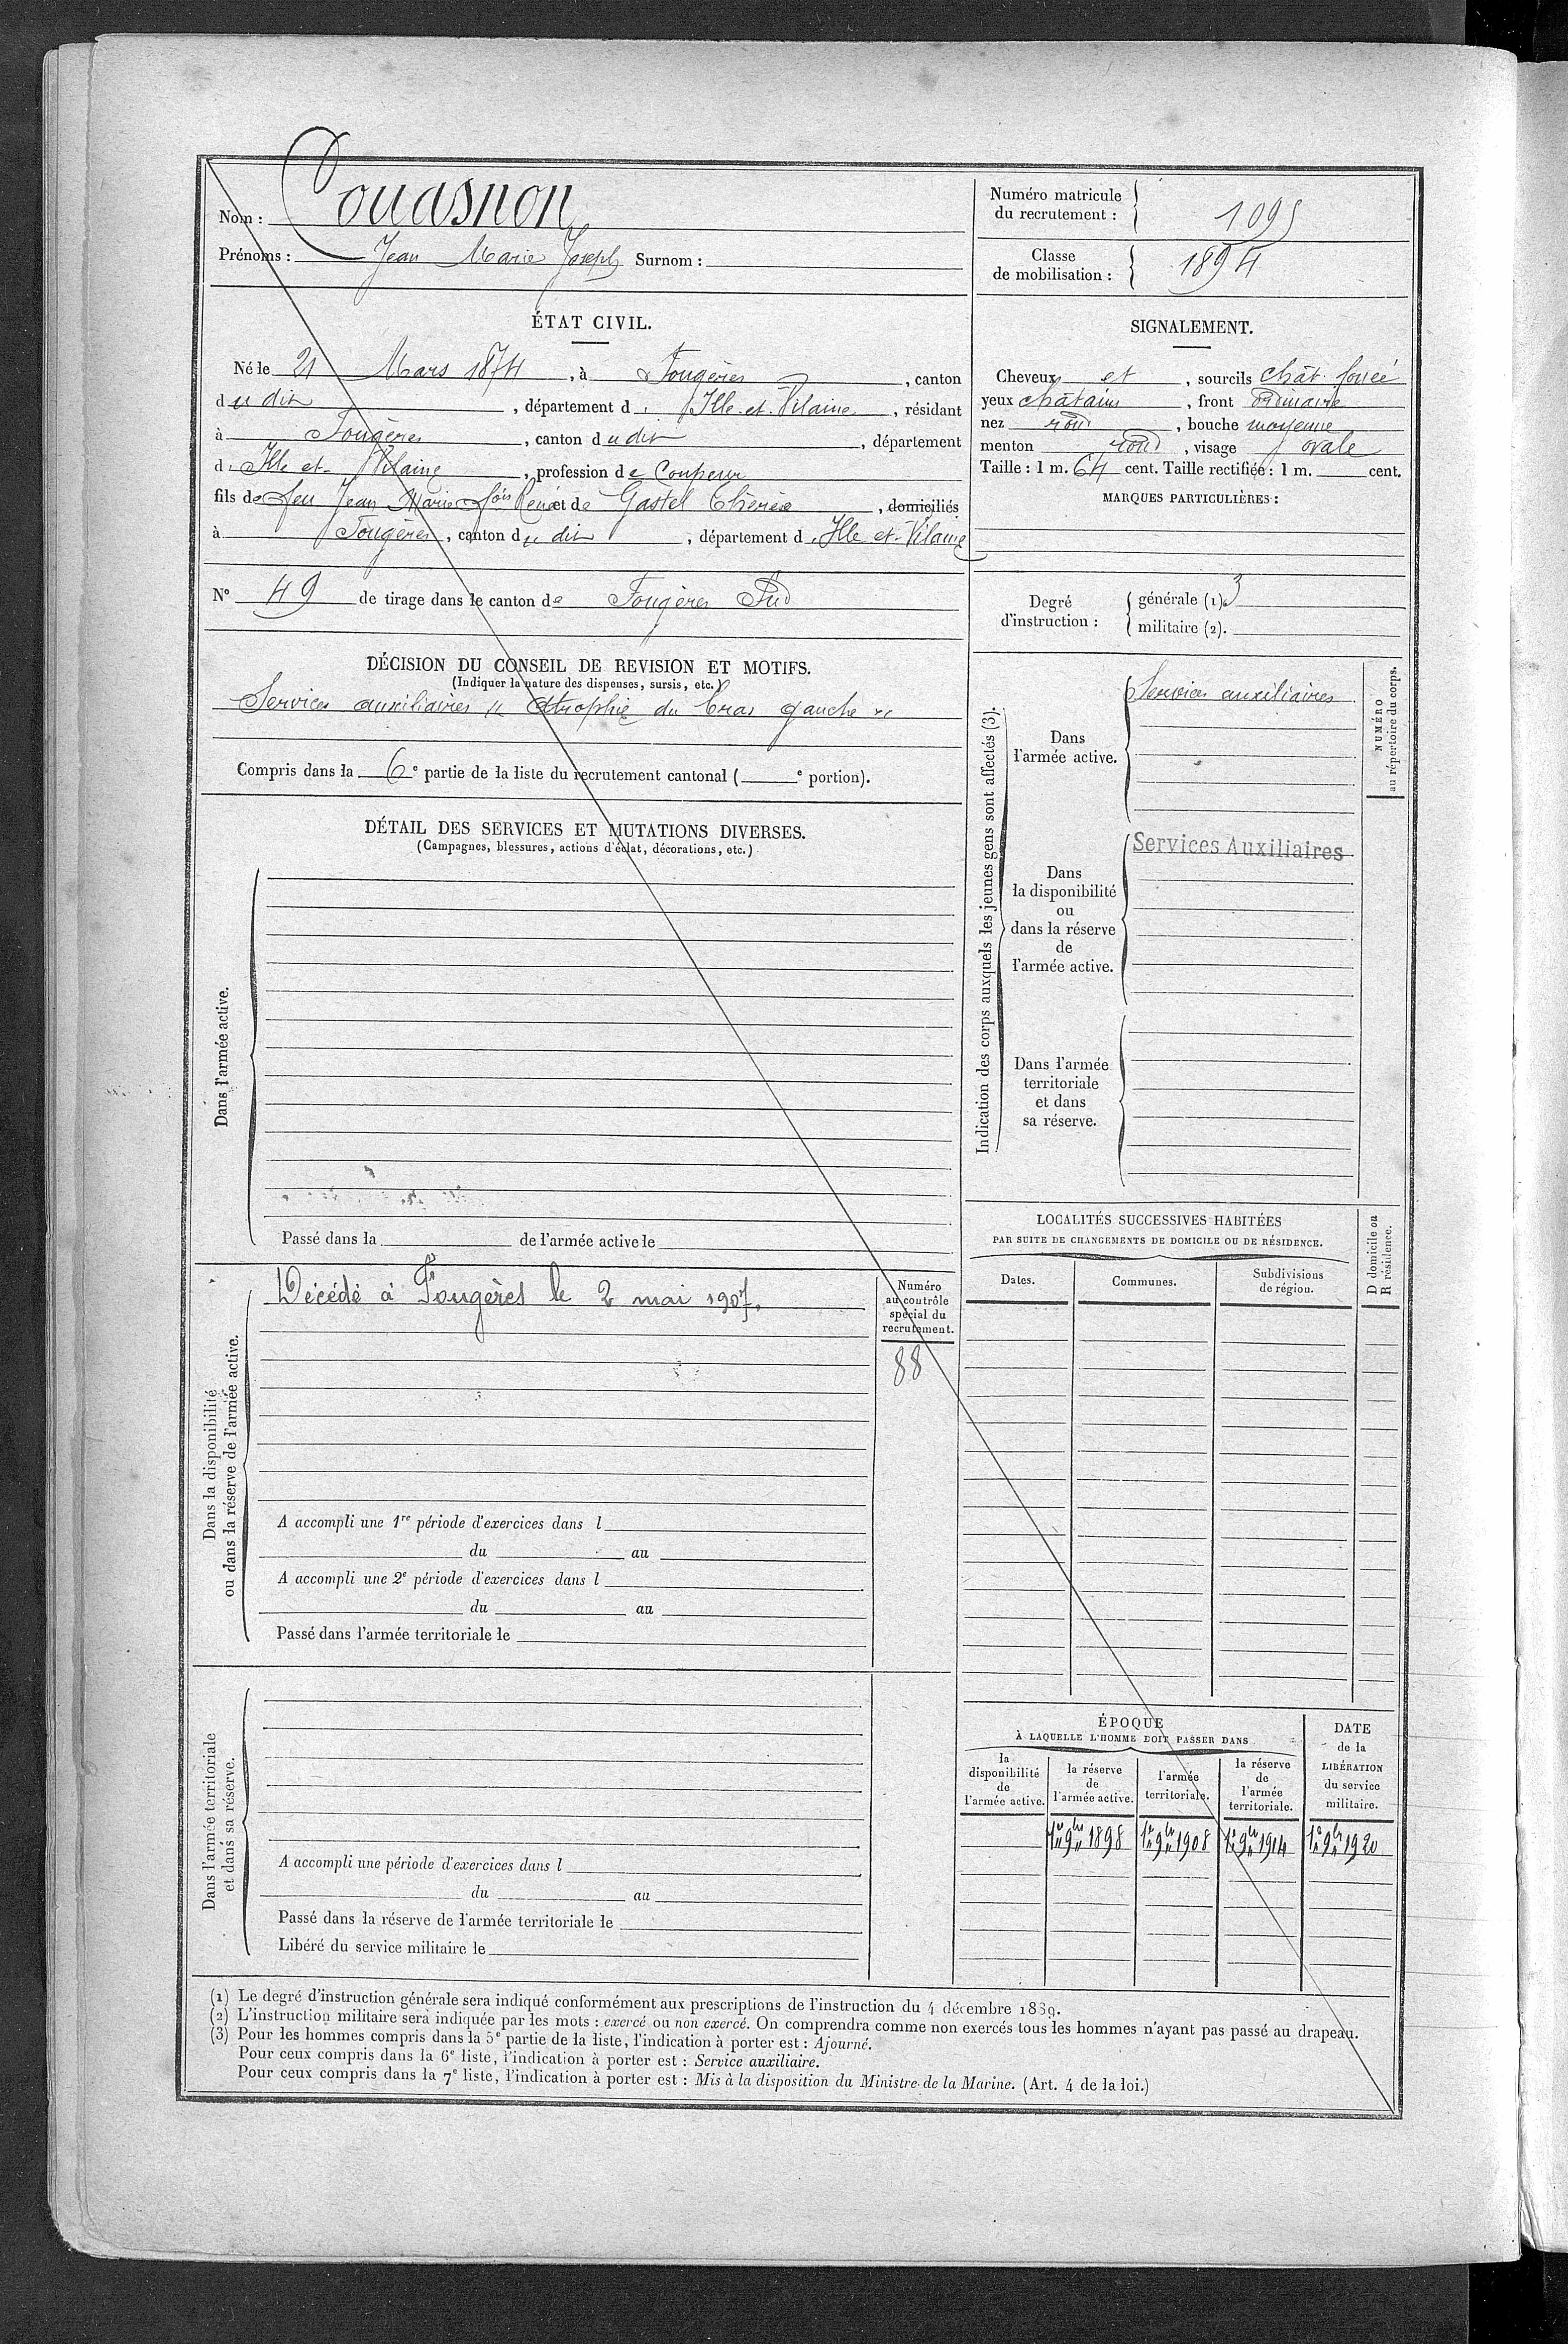 Nom : Couasnon
Prénoms : Jean Marie Joseph Surnom :
Numéro matricule du recrutement : 1095
Classe de mobilisation : 1894
ÉTAT CIVIL.
Né le 21 Mars 1874, à Fougères, canton
dudit, département d'Ille-et-Vilaine, résidant
à Fougères, canton dudit, département
d'Ille-et-Vilaine, profession de Coupeur
fils de feu Jean Marie Fois René et de Gastel Thérèse, domiciliés
à Fougères, canton dudit, département d'Ille-et-Vilaine
N° 49 de tirage dans le canton de Fougères Sud
SIGNALEMENT.
Cheveux et, sourcils chât. foncé
yeux châtains, front ordinaire
nez rond, bouche moyenne
menton rond, visage ovale
Taille : 1 m. 64 cent. Taille rectifiée : 1 m. cent.
MARQUES PARTICULIÈRES :
Degré d'instruction :
générale (1). 3
militaire (2).
DÉCISION DU CONSEIL DE REVISION ET MOTIFS.
(Indiquer la nature des dispenses, sursis, etc.)
Services auxiliaires " Atrophie du bras gauche "
Compris dans la 6e partie de la liste du recrutement cantonal ( e portion).
DÉTAIL DES SERVICES ET MUTATIONS DIVERSES.
(Campagnes, blessures, actions d'éclat, décorations, etc.)
Dans l'armée active.
Passé dans la de l'armée active le
Indication des corps auxquels les jeunes gens sont affectés (3).
Dans
l'armée active.
Services auxiliaires
Dans
la disponibilité
ou
dans la réserve
de
l'armée active.
Services Auxiliaires
Dans l'armée
territoriale
et dans
sa réserve.
NUMÉRO
au répertoire du corps.
LOCALITÉS SUCCESSIVES HABITÉES
PAR SUITE DE CHANGEMENTS DE DOMICILE OU DE RÉSIDENCE.
Dates.
Communes.
Subdivisions
de région.
D domicile ou
R résidence.
Dans la disponibilité
ou dans la réserve de l'armée active.
Décédé à Fougères le 2 mai 1907.
Numéro
au contrôle
spécial du
recrutement.
88
A accompli une 1re période d'exercices dans l
du au
A accompli une 2e période d'exercices dans l
du au
Passé dans l'armée territoriale le
Dans l'armée territoriale
et dans sa réserve.
A accompli une période d'exercices dans l
du au
Passé dans la réserve de l'armée territoriale le
Libéré du service militaire le
ÉPOQUE
À LAQUELLE L'HOMME DOIT PASSER DANS
la
disponibilité
de
l'armée active.
la réserve
de
l'armée active.
l'armée
territoriale.
la réserve
de
l'armée
territoriale.
DATE
de la
LIBÉRATION
du service
militaire.
1er 9bre 1898
1er 9bre 1908
1er 9bre 1914
1er 9bre 1920
(1) Le degré d'instruction générale sera indiqué conformément aux prescriptions de l'instruction du 4 décembre 1889.
(2) L'instruction militaire sera indiquée par les mots : exercé ou non exercé. On comprendra comme non exercés tous les hommes n'ayant pas passé au drapeau.
(3) Pour les hommes compris dans la 5e partie de la liste, l'indication à porter est : Ajourné.
Pour ceux compris dans la 6e liste, l'indication à porter est : Service auxiliaire.
Pour ceux compris dans la 7e liste, l'indication à porter est : Mis à la disposition du Ministre de la Marine. (Art. 4 de la loi.)